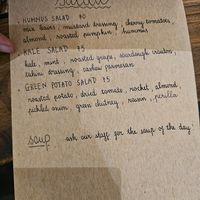 Salad
HUMMUS SALAD
mix leaves, mustard dressing, cherry tomatoes,
almond, roasted pumpkin, hummus
KALE SALAD
kale, mint, roasted grape, sourdough crouton,
tahini dressing, cashew parmesan
GREEN POTATO SALAD
roasted potato, dried tomato, rocket, almond,
pickled onion, green chutney, raisin, perilla
soup ask our staff for the soup of the day!